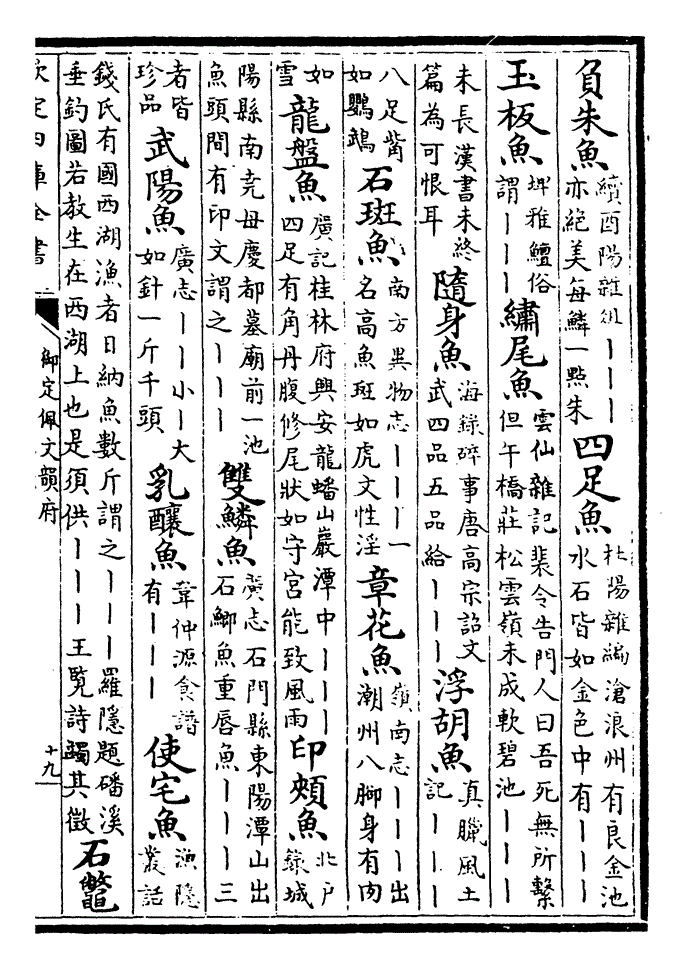 負朱魚
續酉陽雜俎丨丨丨
亦絶美每鱗一點朱
四足魚
杜陽雜編滄浪州有良金池
水石皆如金色中有丨丨丨
玉板魚
埤雅鱣俗
謂丨丨丨
繡尾魚
雲仙雜記裴令告門人曰吾死無所繫
但午橋莊松雲嶺未成軟碧池丨丨丨
未長漢書未終
篇為可恨耳
隨身魚
海錄碎事唐高宗詔文
武四品五品給丨丨丨
浮胡魚
真臘風土
記丨丨丨
八足觜
如鸚鵡
石斑魚
南方異物志丨丨丨一
名高魚斑如虎文性淫
章花魚
嶺南志丨丨丨出
潮州八脚身有肉
如
雪
龍盤魚
廣記桂林府興安龍蟠山巖潭中丨丨丨
四足有角丹腹修尾狀如守宮能致風雨
印頰魚
北戶
錄城
陽縣南堯母慶都墓廟前一池
魚頭間有印文謂之丨丨丨
雙鱗魚
廣志石門縣東陽潭山出
石鯽魚重唇魚丨丨丨三
者皆
珍品
武陽魚
廣志丨丨小丨大
如針一斤千頭
乳釀魚
韋仲源食譜
有丨丨丨
使宅魚
漁隱
叢話
錢氏有國西湖漁者日納魚數斤謂之丨丨丨羅隱題磻溪
垂釣圖若教生在西湖上也是須供丨丨丨王覽詩蠲其徵
石鼈
欽定四庫全書
御定佩文韻府
十九